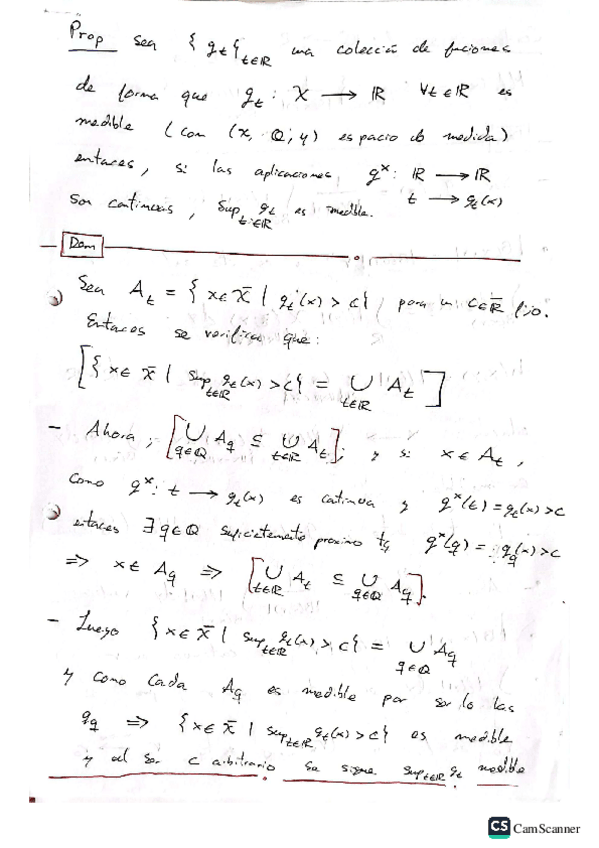 Prop Sea { g_t }_{t∈ℝ} una colección de funciones
de forma que g_t : X → ℝ ∀t∈ℝ es
medible (con (X, Q, μ) espacio de medida)
entonces, si las aplicaciones g^x : ℝ → ℝ
t → g_t(x)
son continuas, Sup_{t∈ℝ} g_t es medible.
Dem
Sea A_t = { x∈X | g_t(x) > c }, para un c∈ℝ fijo.
Entonces se verifica que:
[ { x∈X | sup_{t∈ℝ} g_t(x) > c } = ∪_{t∈ℝ} A_t ]
- Ahora, [ ∪_{q∈ℚ} A_q ⊆ ∪_{t∈ℝ} A_t ], y si x∈A_t,
como g^x : t → g_t(x) es continua y g^x(t) = g_t(x) > c
entonces ∃q∈ℚ suficientemente proximo tq g^x(q) = g_q(x) > c
⇒ x∈A_q ⇒ [ ∪_{t∈ℝ} A_t ⊆ ∪_{q∈ℚ} A_q ].
- Luego { x∈X | sup_{t∈ℝ} g_t(x) > c } = ∪_{q∈ℚ} A_q
y como cada A_q es medible por serlo las
g_q ⇒ { x∈X | sup_{t∈ℝ} g_t(x) > c } es medible
y al ser c arbitrario se sigue sup_{t∈ℝ} g_t medible
CS CamScanner